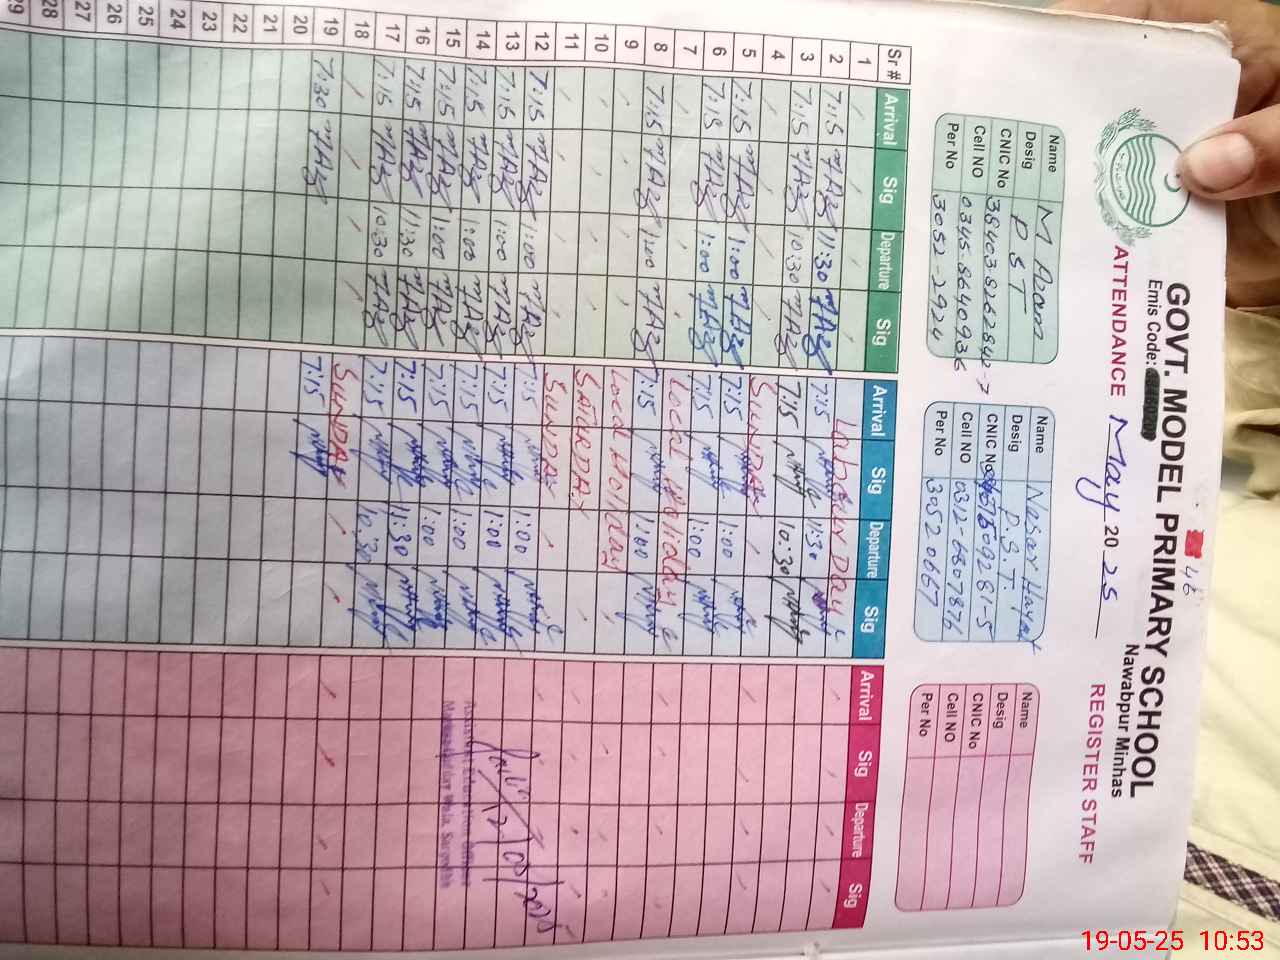 46
GOVT. MODEL PRIMARY SCHOOL
Emis Code:
Nawabpur Minhas
ATTENDANCE May 2025 REGISTER STAFF
Name M Azam
Desig P S T
CNIC No 38403-8262842-7
Cell NO 0345-8640936
Per No 3052-2924
Name Nasar Hayat
Desig P.S.T.
CNIC No
Cell NO 0312-6307876
Per No 30520667
Name
Desig
CNIC No
Cell NO
Per No
Sr# Arrival Sig Departure Sig Arrival Sig Departure Sig Arrival Sig Departure Sig
1 Labour Day
2 7:15 MAz 11:30 MAz 7:15 11:30
3 7:15 MAz 10:30 MAz 7:15 10:30
4 SUNDAY
5 7:15 MAz 1:00 MAz 7:15 1:00
6 7:15 MAz 1:00 MAz 7:15 1:00
7 Local Holiday
8 7:15 MAz 1:00 MAz 7:15 1:00
9 Local Holiday
10 SATURDAY
11 SUNDAY
12 7:15 MAz 1:00 MAz 7:15 1:00
13 7:15 MAz 1:00 MAz 7:15 1:00
14 7:15 MAz 1:00 MAz 7:15 1:00
15 7:15 MAz 1:00 MAz 7:15 1:00
16 7:15 MAz 11:30 MAz 7:15 11:30
17 7:15 MAz 10:30 MAz 7:15 10:30
18 SUNDAY
19 7:30 MAz 7:15
20
21
22
23
24
25
26
27
28
29
Assistant Education Officer
19-05-25 10:53